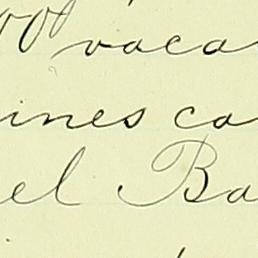 00 vaca
ines ca
el Ba